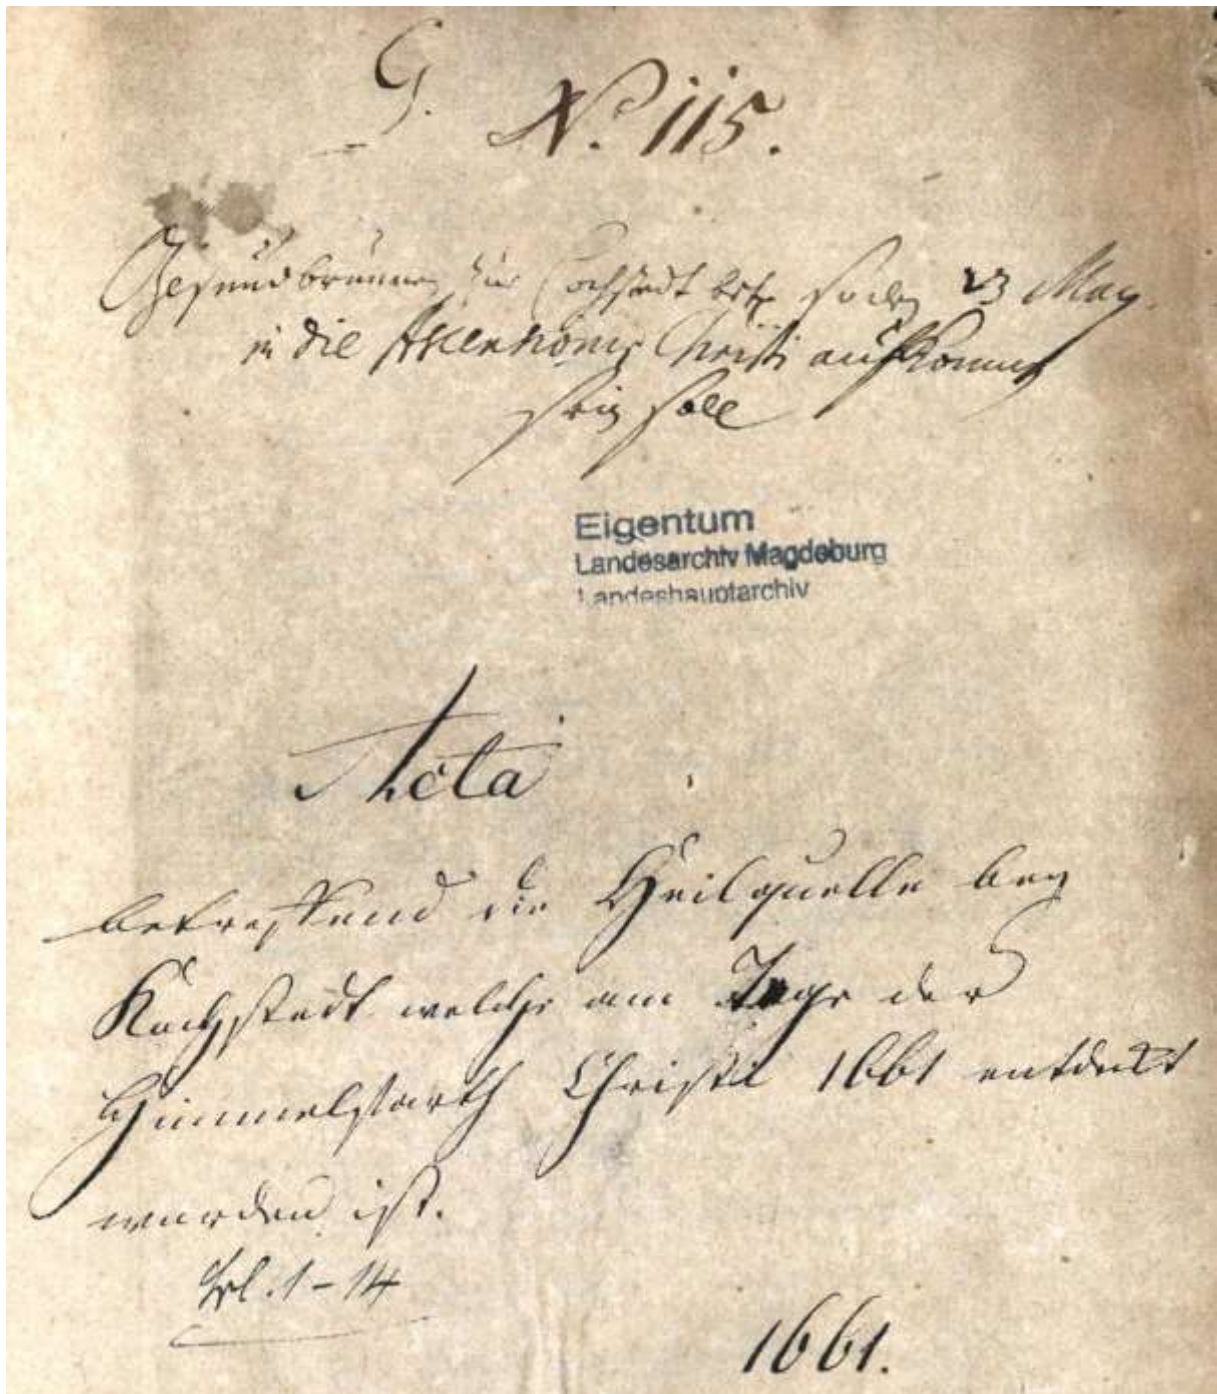 G. No. 115.
Gesundbrunnen zu Cochstedt betr. so den 23 May.
in die Ascensionis Christi aufkommen
sein soll
Eigentum
Landesarchiv Magdeburg
Landeshauptarchiv
Acta
betreffend die Heilquelle bey
Kochstedt welche am Tage der
Himmelfarth Christi 1661 entdekt
worden ist.
Bl. 1-14
1661.